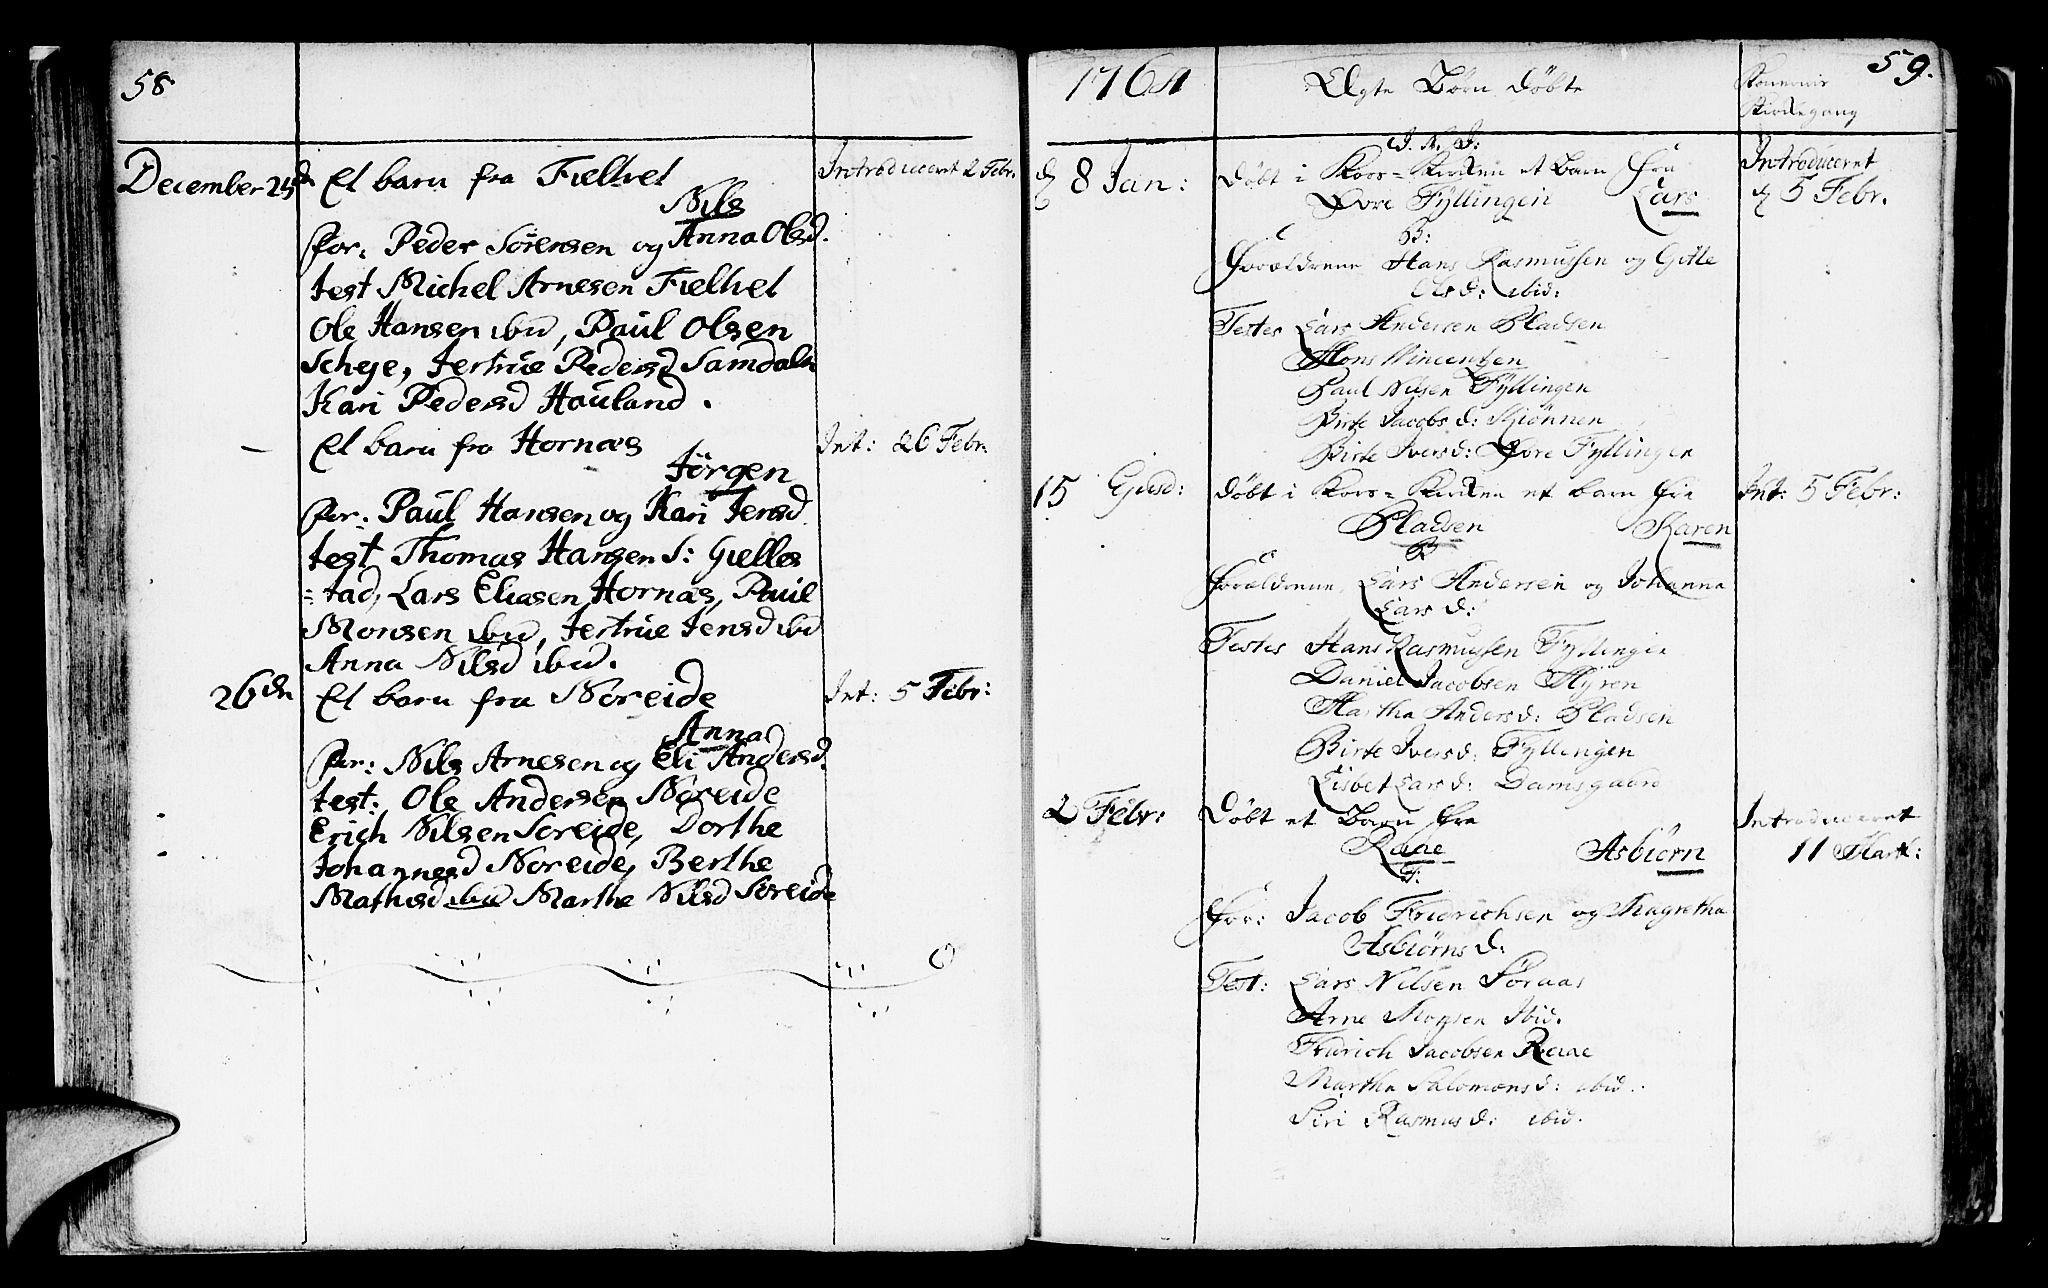 58
December 25d Et barn fra Fielhet Introduceret 2 Febr.
Nils
For: Peder Sörensen og Anna Olsd.
test Michel Arnesen Fielhet
Ole Hansen ibid, Paul Olsen
Scheje, Jertrue Pedersd Samdaln
Kari Pedersd Hauland.
— Et barn fra Hornæs Int: 26 Febr.
Jörgen
For. Paul Hansen og Kari Jensd
test Thomas Hansen S: Gielles
=tad, Lars Eliasen Hornæs, Paul
Monsen ibid, Jertrue Jensd ibid
Anna Nilsd ibid.
26dn Et barn fra Noreide Int: 5 Febr:
Anna
For: Nils Arnesen og Eli Andersd.
test: Ole Andersen Noreide
Erich Nilsen Soreide, Dorthe
Johannesd Noreide, Berthe
Mathisd ibid Marthe Nilsd Soreide
59.
1764 Ægte Börn Döbte Konernis
Kirkegang
I. N. J:
d 8 Jan: Döbt i Kors=Kirken et Barn fra Introduceret
Övre Fyllingen Lars d 5 Febr.
B:
Forældrene Hans Rasmussen og Gitle
Olsd: ibid:
Testes Lars Andersen Pladsen
Mons Vincentzen
Paul Nilsen Fyllingen
Birte Jacobsd: Miönnen
Birte Iversd: Övre Fyllingen
15 Ejusd: Döbt i Kors=Kirken et barn fra Int: 5 Febr:
Pladsen Karen
B
Forældrene Lars Andersen og Johanna
Larsd:
Testes Hans Rasmussen Fyllingen
Daniel Jacobsen Myren
Martha Andersd: Pladsen
Birte Iversd: Fyllingen
Lisbet Larsd: Damsgaard
2 Febr: Döbt et Barn fra Introduceret
Raae Asbiörn 11 Mart:
F:
For: Jacob Fridrichsen og Magretha
Asbiörnsd:
Test: Lars Nilsen Söraas
Arne Monsen Ibid.
Fridrich Jacobsen Raae
Martha Salomonsd: ibid:
Siri Rasmusd: ibid.